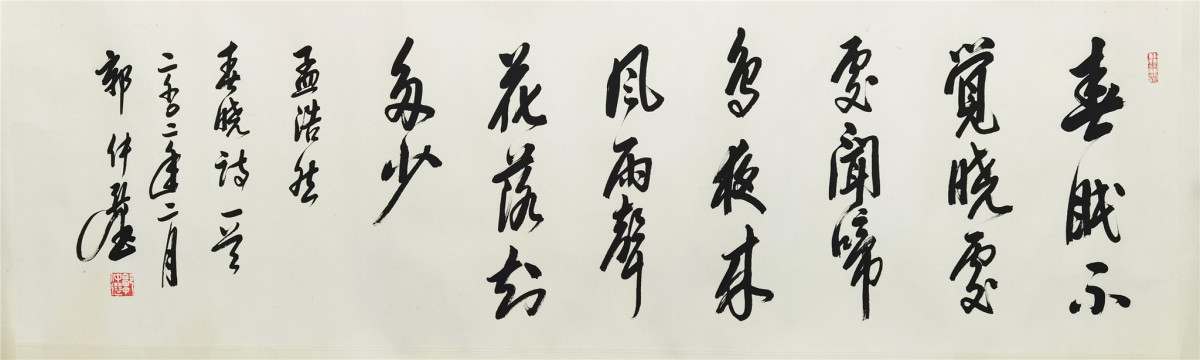 春眠不
覺晓處
處聞啼
鳥夜来
風雨聲
花落知
多少
孟浩然
春晓诗一首
二零〇二年二月
郭仲選